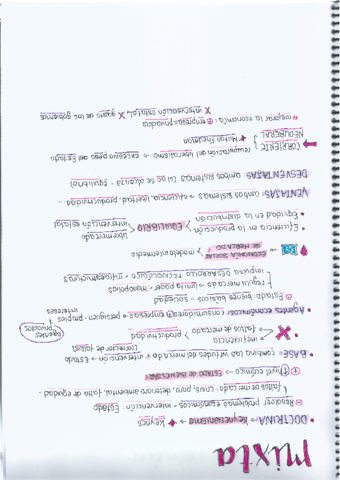 mixta
• DOCTRINA → Keynesianismo → Keynes
Resolver problemas económicos - intervención: Estado
fallos de mercado: crisis, paro, deterioro ambiental, falta de equidad
① nivel económico → ESTADO DE BIENESTAR
• BASE → combina las virtudes del mercado + intervención → Estado
(corrector de fallos)
ineficiencia
fallos de mercado > productividad
• Agentes económicos: consumidores + empresas → presión - propios intereses
agentes privados
⊕ Estado → bienes básicos - sociedad
regula mercado → limita poder - monopolios
impulsa DESARROLLO TECNOLÓGICO - infraestructuras
ECONOMÍA SOCIAL DE MERCADO > modelo intermedio
• Eficiencia en la producción
• Equidad en la distribución
EQUILIBRIO
libremercado
intervención estatal
VENTAJAS: ambos sistemas → eficiencia, libertad, productividad...
DESVENTAJAS: ambos sistemas (si no se alcanza - equilibrio)
CORRIENTE NEOLIBERAL
recuperación del liberalismo → excesivo peso del Estado
Milton Friedman
⊕ mejorar la economía: ⊕ empresas privadas
× intervención estatal, × gasto de los gobiernos